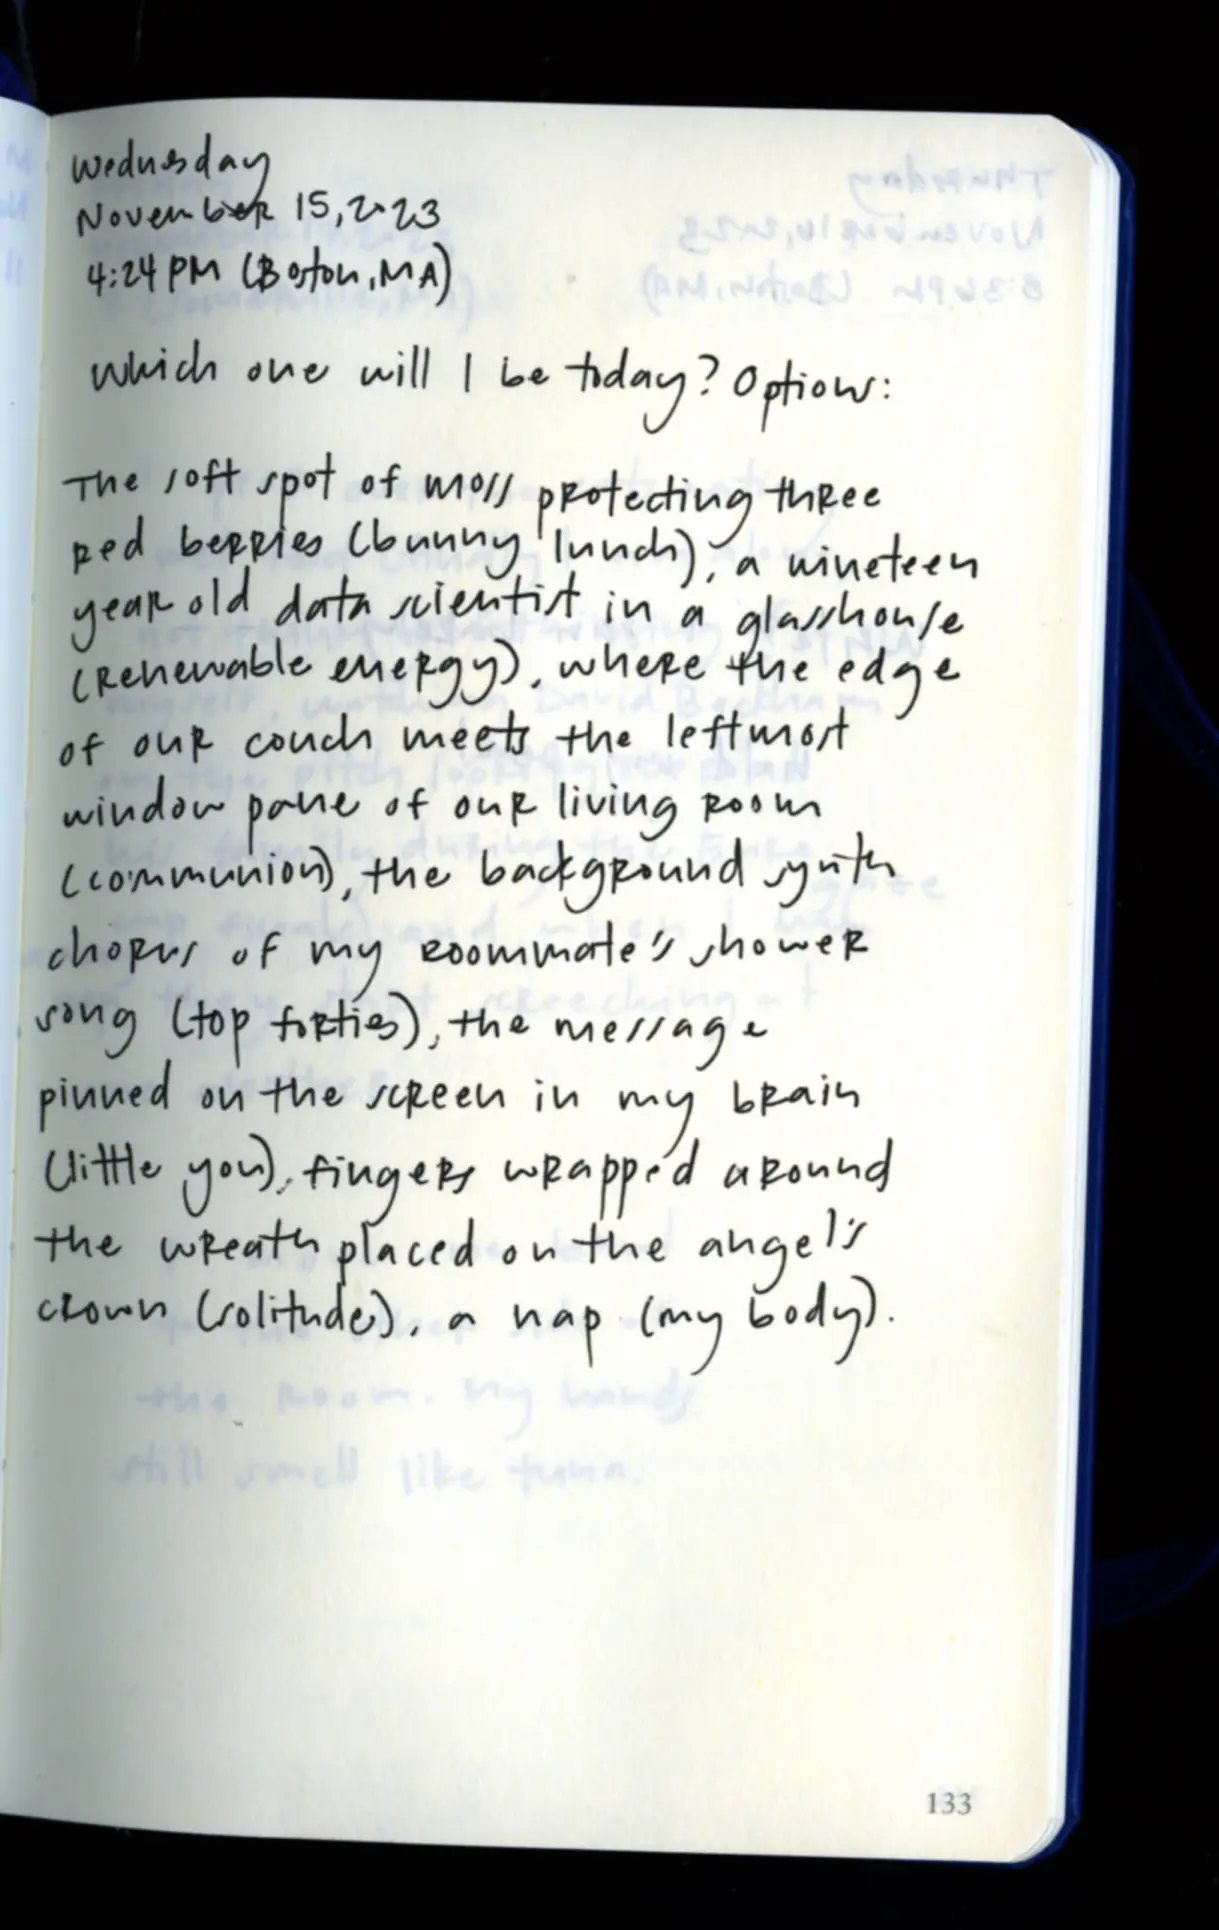 Wednesday
November 15, 2023
4:24 PM (Boston, MA)
Which one will I be today? Options:
The soft spot of moss protecting three
red berries (bunny lunch), a nineteen
year old data scientist in a glasshouse
(renewable energy), where the edge
of our couch meets the leftmost
window pane of our living room
(communion), the background synth
chorus of my roommate's shower
song (top forties), the message
pinned on the screen in my brain
(little you), fingers wrapped around
the wreath placed on the angel's
crown (solitude), a nap (my body).
the room. My hands
still smell like tuna.
133